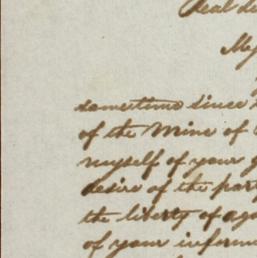 My
sometime since
of the Mine of
myself of your g
desire of the part
the liberty of aga
of your inform